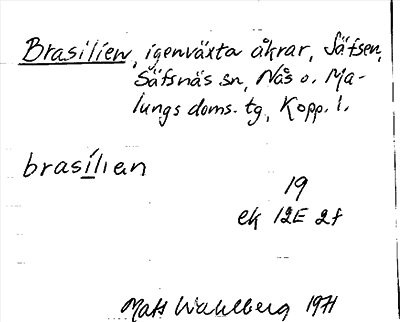 Brasilien, igenväxta åkrar, Säfsen,
Säfsnäs sn, Nås o. Ma-
lungs doms. tg, Kopp. l.
brasílian
19
ek 12E 2f
Mats Wahlberg 1971